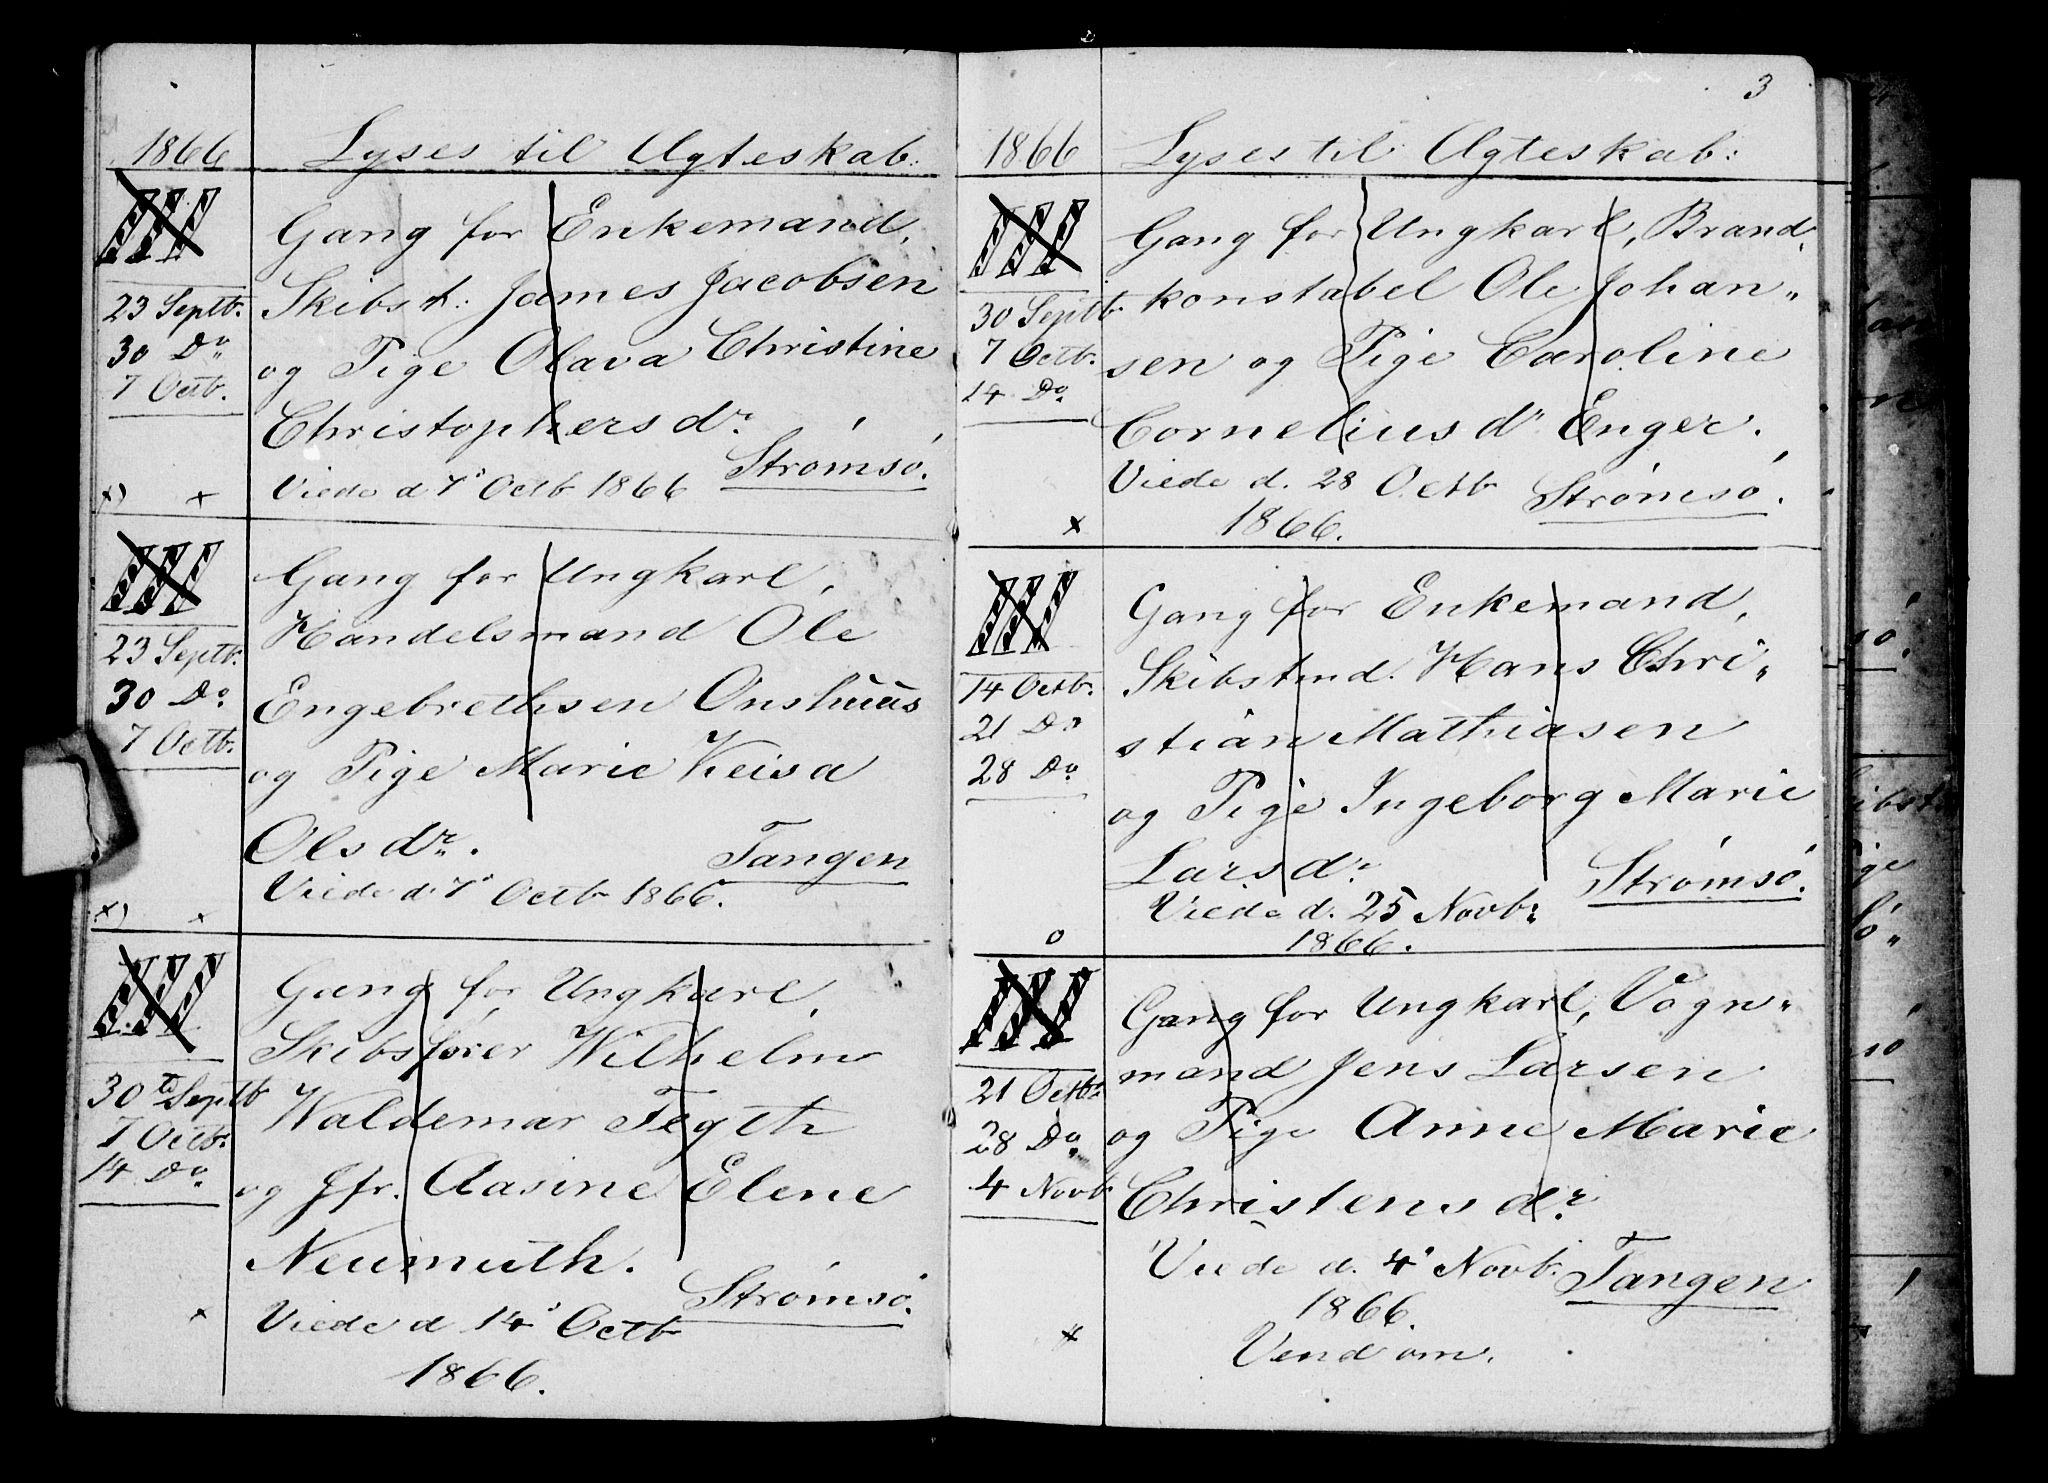 1866 Lyses til Ægteskab:
III Gang for Enkemand,
23 Septb. Skibst: James Jacobsen
30 Do og Pige Olava Christine
7 Octb. Christophersdr.
Strømsø.
x) x Viede d 7 Octb 1866
III Gang for Ungkarl,
23 Septb. Handelsmand Ole
30 Do Engebrethsen Onshuus
7 Octb. og Pige Marie
Olsdr. Tangen
x) x Viede d. 7 Octb 1866.
III Gang for Ungkarl,
Skibsfører Wilhelm
30te Septb Waldemar Tegth
7 Octb. og Jfr. Aasine Elene
14 Do Neumuth.
Strømsø.
x Viede d 14 Octb
1866.
3
1866 Lyses til Ægteskab:
III Gang for Ungkarl, Brand-
30 Septb. konstabel Ole Johan-
7 Octb. sen og Pige Caroline
14 Do Corneliusdr Enger.
Viede d. 28 Octb Strømsø.
x 1866.
III Gang for Enkemand,
Skibstmd. Hans Chri-
14 Octb. stian Mathiasen
21 Do og Pige Ingeborg Marie
28 Do Larsdr. Strømsø.
Viede d. 25 Novbr
o 1866.
III Gang for Ungkarl, Vogn-
21 Octb. mand Jens Larsen
28 Do og Pige Anne Marie
4 Novb Christensdr.
Viede d. 4 Novb. Tangen
1866.
x Vend om.